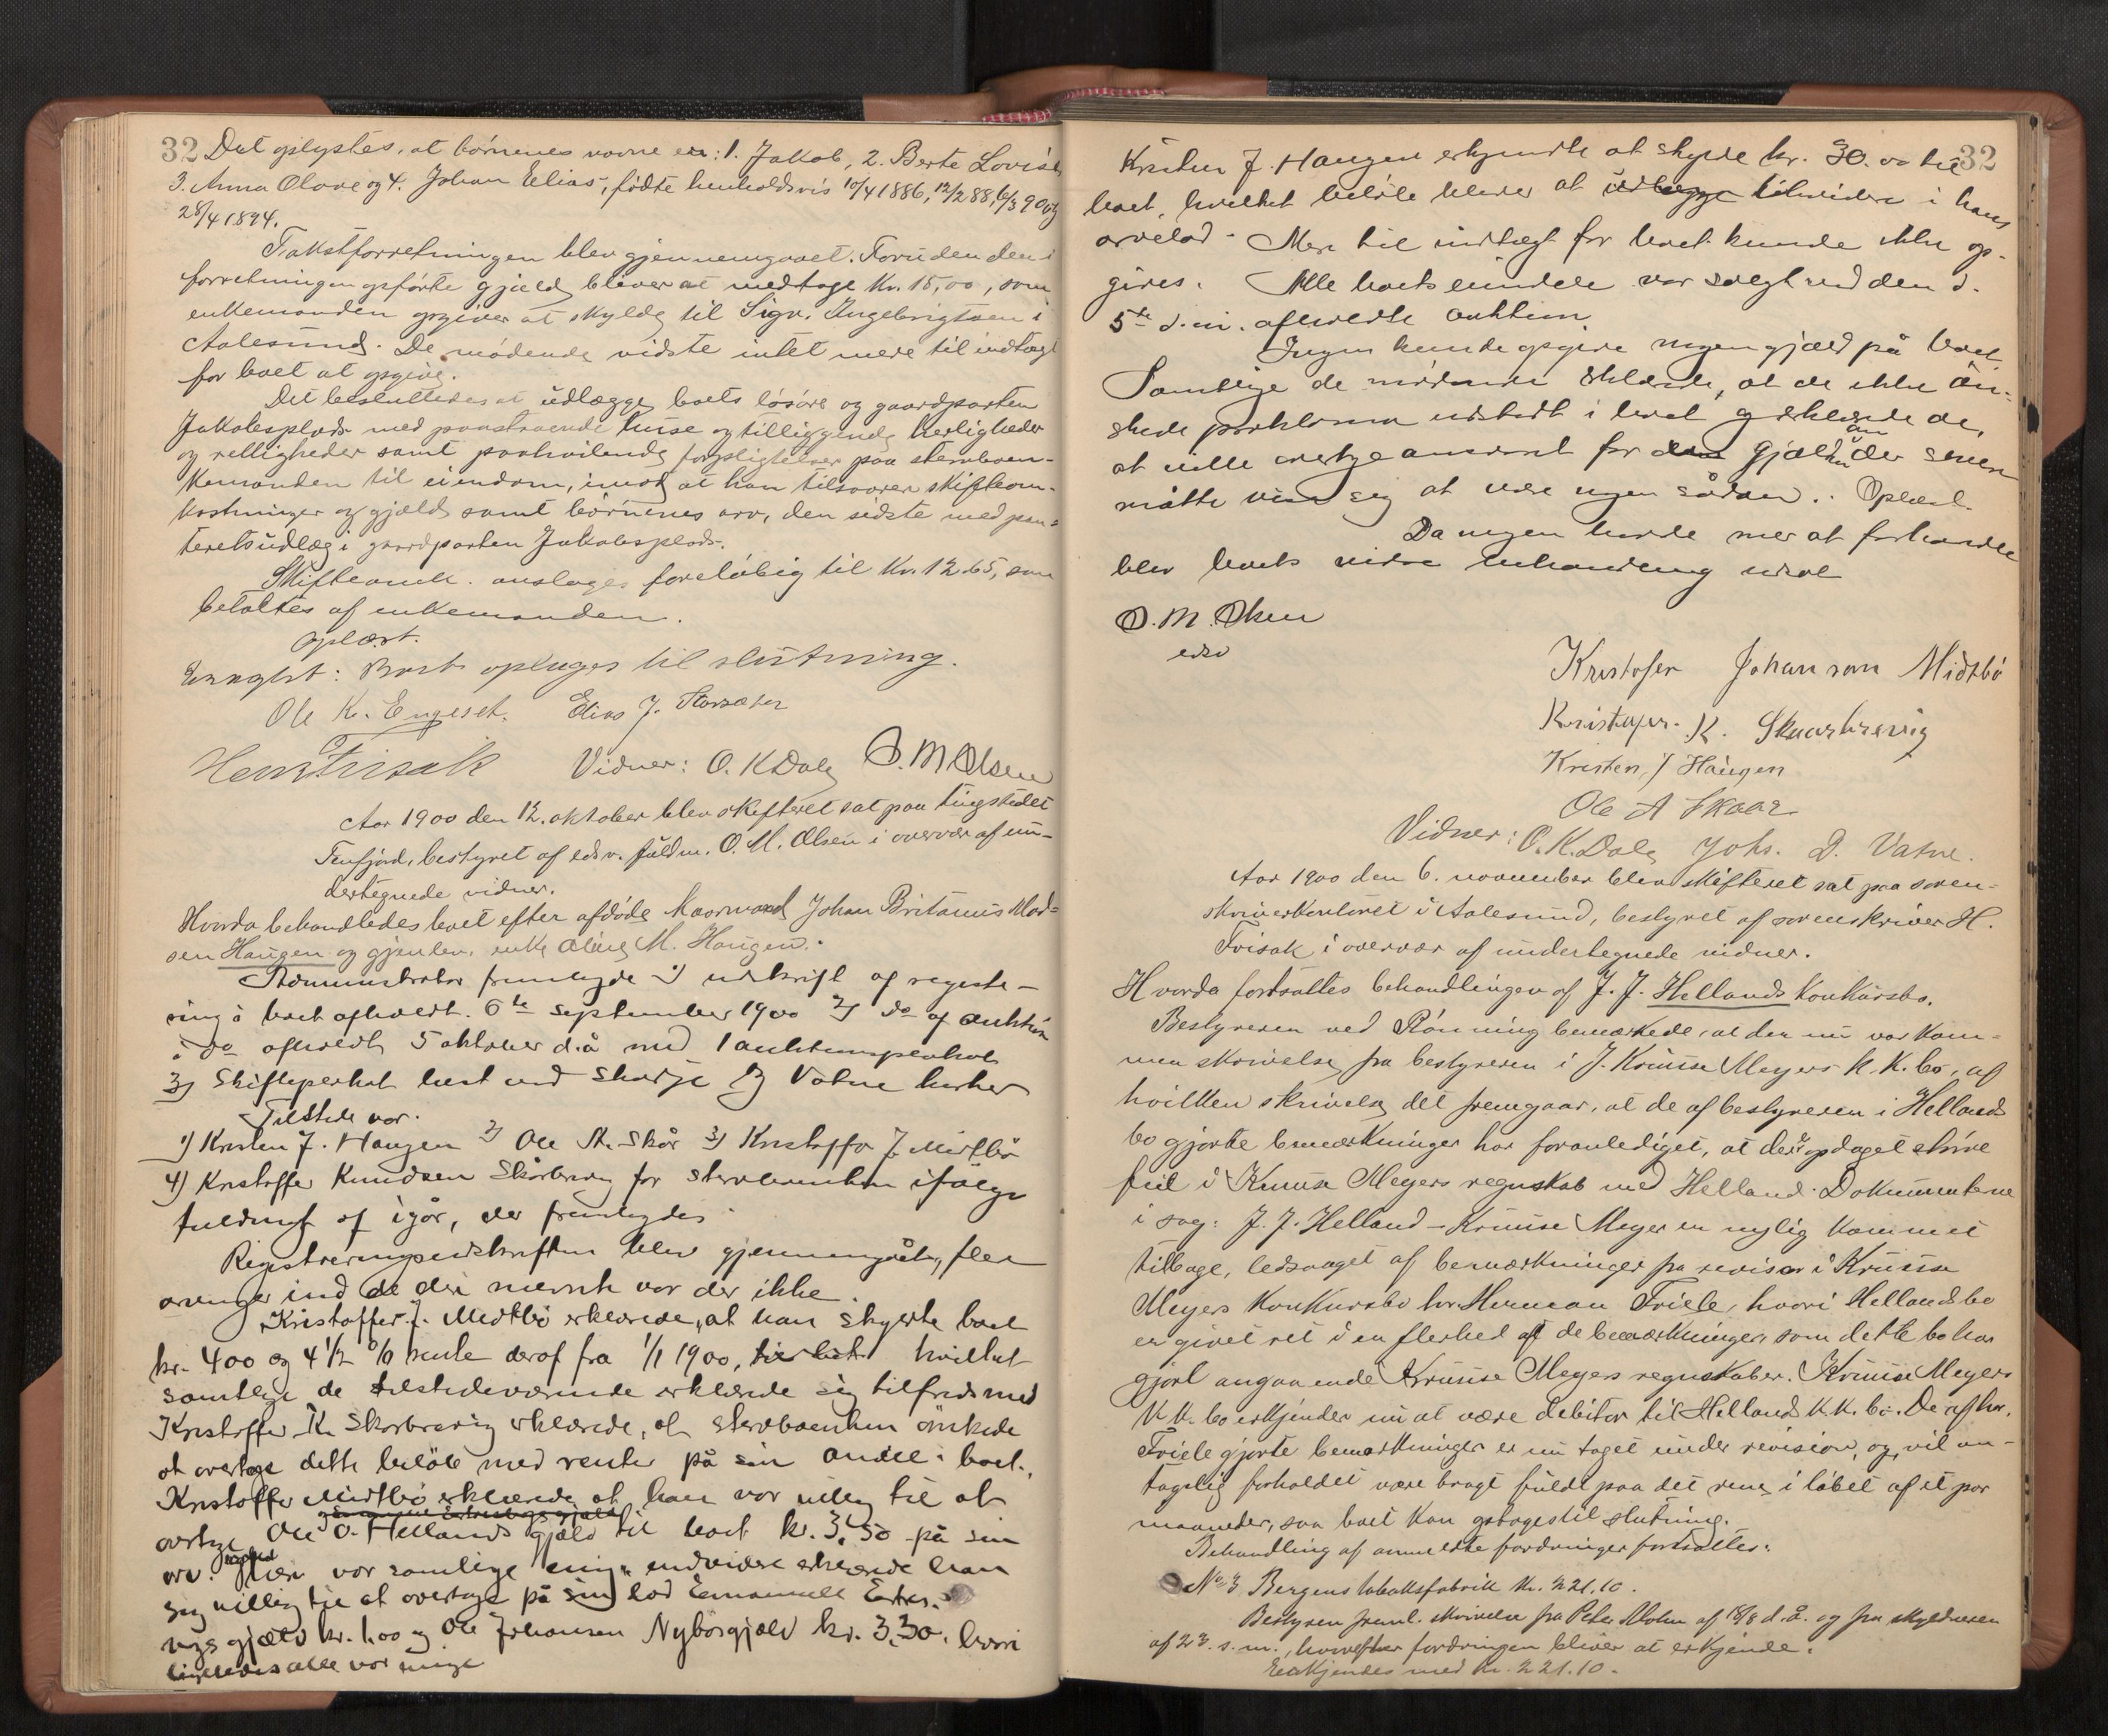 32 Det oplystes, at børnenes navne er: 1. Jakob, 2. Berte Lovise
3. Anna Olave og 4. Johan Elias, fødte henholdsvis 10/4 1886, 12/2 88, 6/3 90 og
28/4 1894.
Takstforretningen blev gjennemgaaet. Foruden den i
forretningen opførte gjæld bliver at medtage Kr. 15,00, som
enkemanden opgiver at skylde til Sigv. Ingebrigtsen i
Aalesund. De mødende vidste intet mere til indtægt
for boet at opgive.
Det besluttedes at udlægge boets løsøre og gaardparten
Jakobsplads med paastaaende huse og tilliggende herligheder
og rettigheder samt paahvilende forpligtelser paa sterboen-
kemanden til eiendom, imod at han tilsvarer skifteom-
kostninger og gjæld samt børnenes arv, den sidste med pan-
teretsudlæg i gaardparten Jakobsplads.
Skifteomk. ansloges foreløbig til Kr. 12.65, som
betaltes af enkemanden.
Oplæst.
Eragtet: Boet optages til slutning.
Ole K. Engeset. Elias J. Storsæter
Hen Frisak Vidner: O. K Dale O. M Olsen
Aar 1900 den 12. oktober blev skifteret sat paa tingstedet
Tenfjord, bestyret af edsv. fuldm. O. M. Olsen i overvær af un-
dertegnede vidner.
Hvorda behandledes boet efter afdøde Kaarmand Johan Britanus Mad-
sen Haugen og gjenlev. enke Oline M. Haugen.
Administrator fremlagde 1) udskrift af registe-
ring i boet afholdt 6te september 1900 2) do af auktion
i do afholdt 5 oktober d.å med 1 auktionsplakat
3) Skifteplakat læst ved Skodje & Vatne kirker
Tilstede var.
1) Kristen J. Haugen 2) Ole A. Skår 3) Kristoffer J. Midtbø
4) Kristoffer Knudsen Skarbrevig for sterboenken ifølge
fuldmgt af igår, der fremlagdes
Registreringsudskriften blev gjennemgået, flere
arvinger end de der nævnte var der ikke.
Kristoffer J. Midtbø erklærede, at han skyldte boet
kr. 400 og 4 1/2 % rente deraf fra 1/1 1900, hvilket
samtlige de tilstedeværende erklærede sig tilfreds med
Kristoffer K. Skarbrevig erklærede, at sterboenken ønskede
at overtage dette beløb med renter på sin andel i boet.
Kristoffer Midtbø erklærede at han var villig til at
overtage Ole O. Hellands gjæld til boet kr. 3,50 på sin
arv. Heri var samtlige enige. Endvidere erklærede han
sig villig til at overtage på sin lod Emanuell Estens-
vogs gjæld kr. 1.00 og Ole Johansen Nybøs gjæld kr. 3.30. hvori
ligeledes alle var enige
32
Kristen J. Haugen erkjendte at skylde kr. 30.00 til
boet, hvilket beløb bliver at udlægge i hans
arvelod. Mere til indtægt for boet kunde ikke op-
gives. Alle boets eiendele var solgt ved den d.
5te d.m. afholdte auktion.
Ingen kunde opgive nogen gjæld på boet.
Samtlige de mødende erklærede, at de ikke øn-
skede proklama udstedt i boet og erklærede de,
at ville overtage ansvaret for gjælden om der senere
måtte vise sig at være nogen sådan. Oplæst.
Da ingen havde mer at forhandle
blev boets videre behandling udsat
O. M. Olsen
edsv
Kristofer Johanson Midtbö
Kristofer. K. Skaarbrevig
Kristen J Haugen
Ole A Skaar
Vidner: O. K. Dale Johs. D. Vatne.
Aar 1900 den 6. november blev skifteret sat paa soren-
skriverkontoret i Aalesund, bestyret af sorenskriver H.
Frisak i overvær af undertegnede vidner.
Hvorda fortsattes behandlingen af J. J. Hellands konkursbo.
Bestyreren ved Rønning bemærkede, at der nu var kom-
men skrivelse fra bestyreren i J. Kruuse Meyers K. K. bo, af
hvilken skrivelse det fremgaar, at de af bestyreren i Hellands
bo gjorte bemærkninger har foranlediget, at der er opdaget større
feil i Kruuse Meyers regnskab med Helland. Dokumenterne
i sag: J. J. Helland – Kruuse Meyer er nylig kommet
tilbage, ledsaget af bemærkninger fra revisor i Kruuse
Meyers Konkursbo hr. Herman Friele, hvori Hellands bo
er givet ret i en flerhed af de bemærkninger som dette bo har
gjort angaaende Kruuse Meyers regnskaber. Kruuse Meyers
K. K. bo erkjender nu at være debitor til Hellands K. K. bo. De af hr.
Friele gjorte bemærkninger er nu taget under revision, og vil an-
tagelig forholdet være bragt fuldt paa det rene i løbet af et par
maaneder, saa boet kan optages til slutning.
Behandling af anmeldte fordringer fortsattes:
No 3 Bergens tobaksfabrik Kr. 221.10.
Bestyren freml. skrivelse fra Peter Mohn af 18/8 d. å. og fra skyldneren
af 23. s. m., hvorefter fordringen bliver at erkjende.
Erkjendes med kr. 221.10.